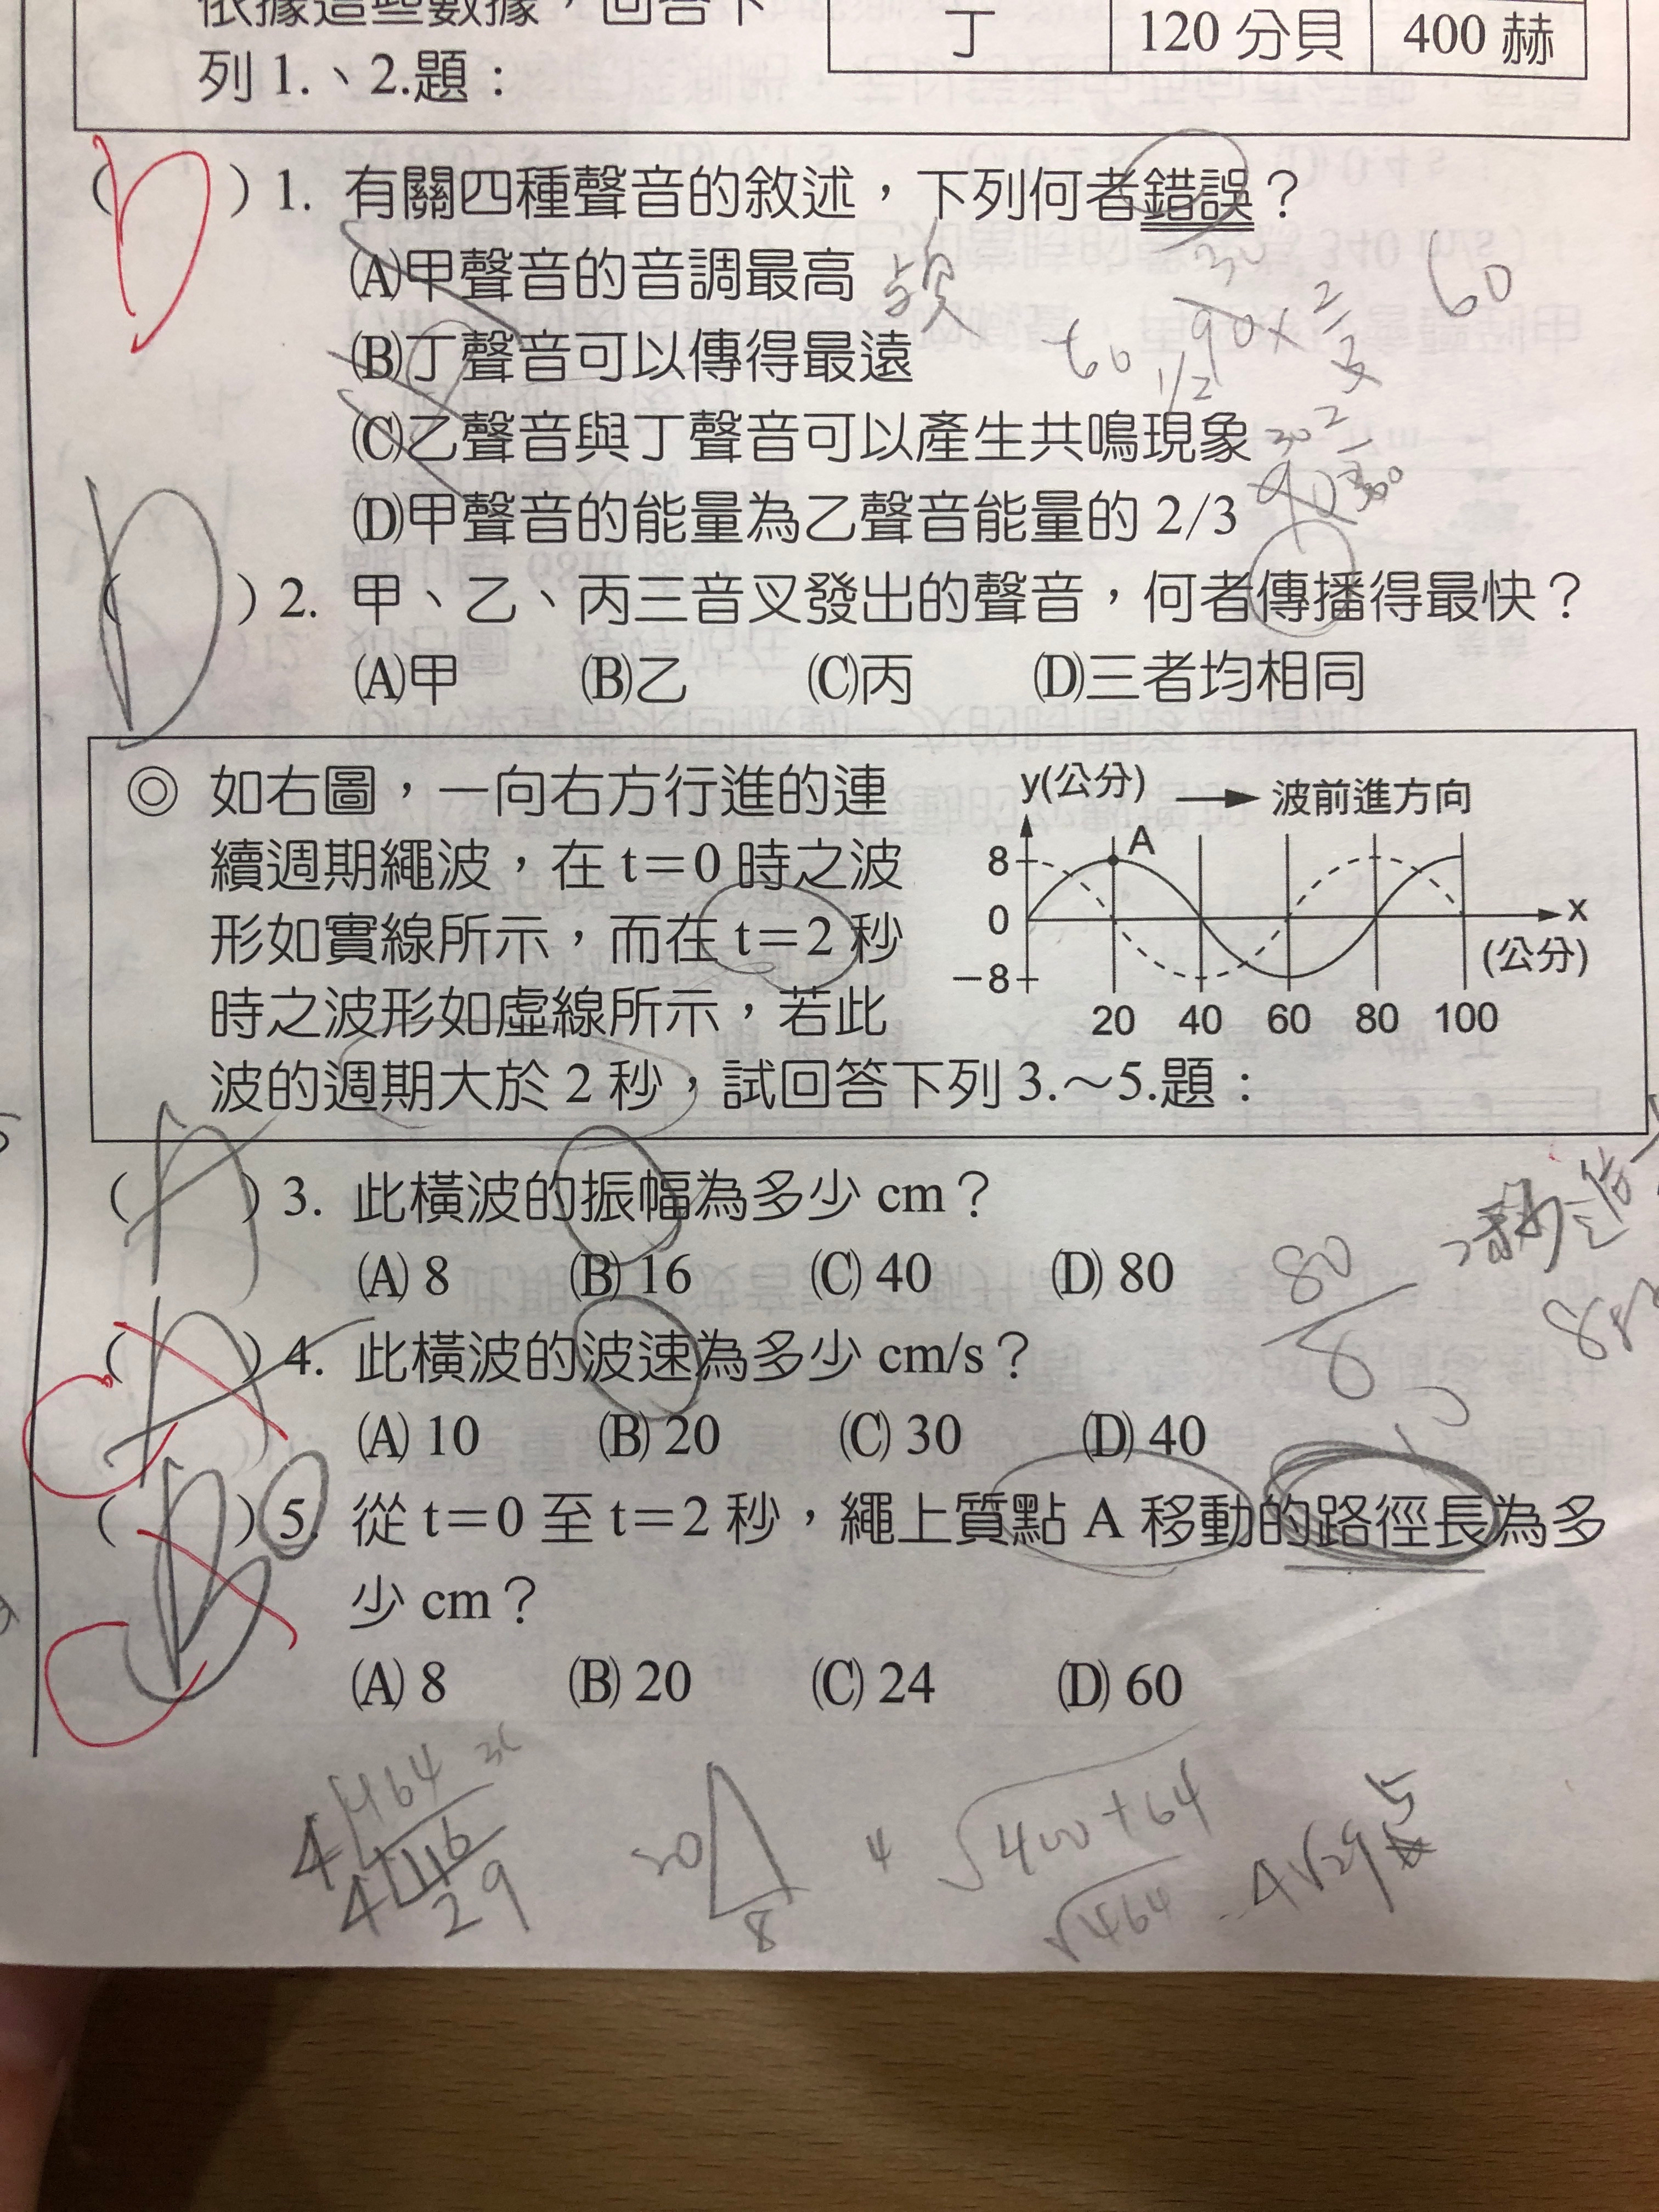 依據這些數據，回答下
列 1.、2.題：
丁 120 分貝 400 赫
D
( ) 1. 有關四種聲音的敘述，下列何者錯誤？
(A)甲聲音的音調最高
(B)丁聲音可以傳得最遠
(C)乙聲音與丁聲音可以產生共鳴現象
(D)甲聲音的能量為乙聲音能量的 2/3
60
D
( ) 2. 甲、乙、丙三音叉發出的聲音，何者傳播得最快？
(A)甲 (B)乙 (C)丙 (D)三者均相同
◎ 如右圖，一向右方行進的連
續週期繩波，在 t＝0 時之波
形如實線所示，而在 t＝2 秒
時之波形如虛線所示，若此
波的週期大於 2 秒，試回答下列 3.～5.題：
y(公分) 波前進方向
A
8
0
－8
x
(公分)
20 40 60 80 100
( A ) 3. 此橫波的振幅為多少 cm？
(A) 8 (B) 16 (C) 40 (D) 80
80
8
( A ) 4. 此橫波的波速為多少 cm/s？
C
(A) 10 (B) 20 (C) 30 (D) 40
( ) 5. 從 t＝0 至 t＝2 秒，繩上質點 A 移動的路徑長為多
少 cm？
C
(A) 8 (B) 20 (C) 24 (D) 60
4 464
4 116
29
8
4 √400+64
√464 4√29
5